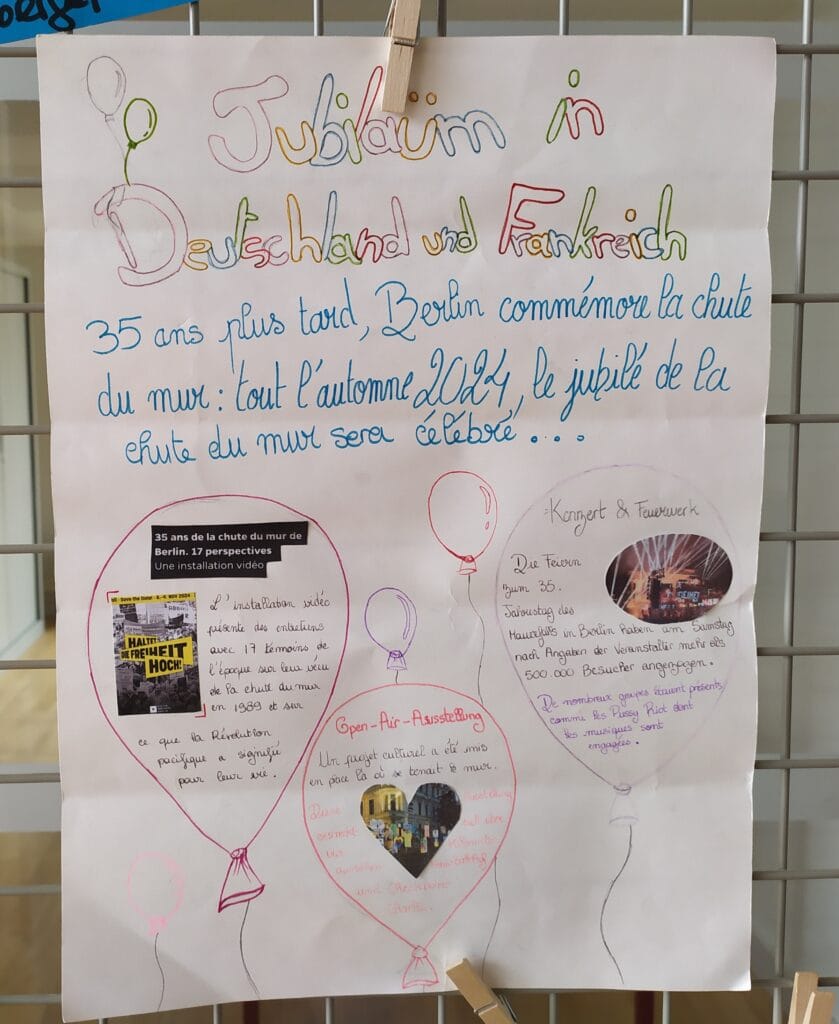 Jubilaüm in
Deutschland und Frankreich
35 ans plus tard, Berlin commémore la chute
du mur : tout l'automne 2024, le jubilé de la
chute du mur sera célébré ...
35 ans de la chute du mur de
Berlin. 17 perspectives
Une installation vidéo
HALTET
DIE FREIHEIT
HOCH!
L'installation vidéo
présente des entretiens
avec 17 témoins de
l'époque sur leur vécu
de la chute du mur
en 1989 et sur
ce que la Révolution
pacifique a signifié
pour leur vie.
Open-Air-Ausstellung
Un projet culturel a été mis
en place là où se tenait le mur.
und Checkpoint
Charlie.
Konzert & Feuerwerk
Die Feiern
zum 35.
Jahrestag des
Mauerfalls in Berlin haben am Samstag
nach Angaben der Veranstalter mehr als
500.000 Besucher angezogen.
De nombreux groupes étaient présents
comme les Pussy Riot dont
les musiques sont
engagées.